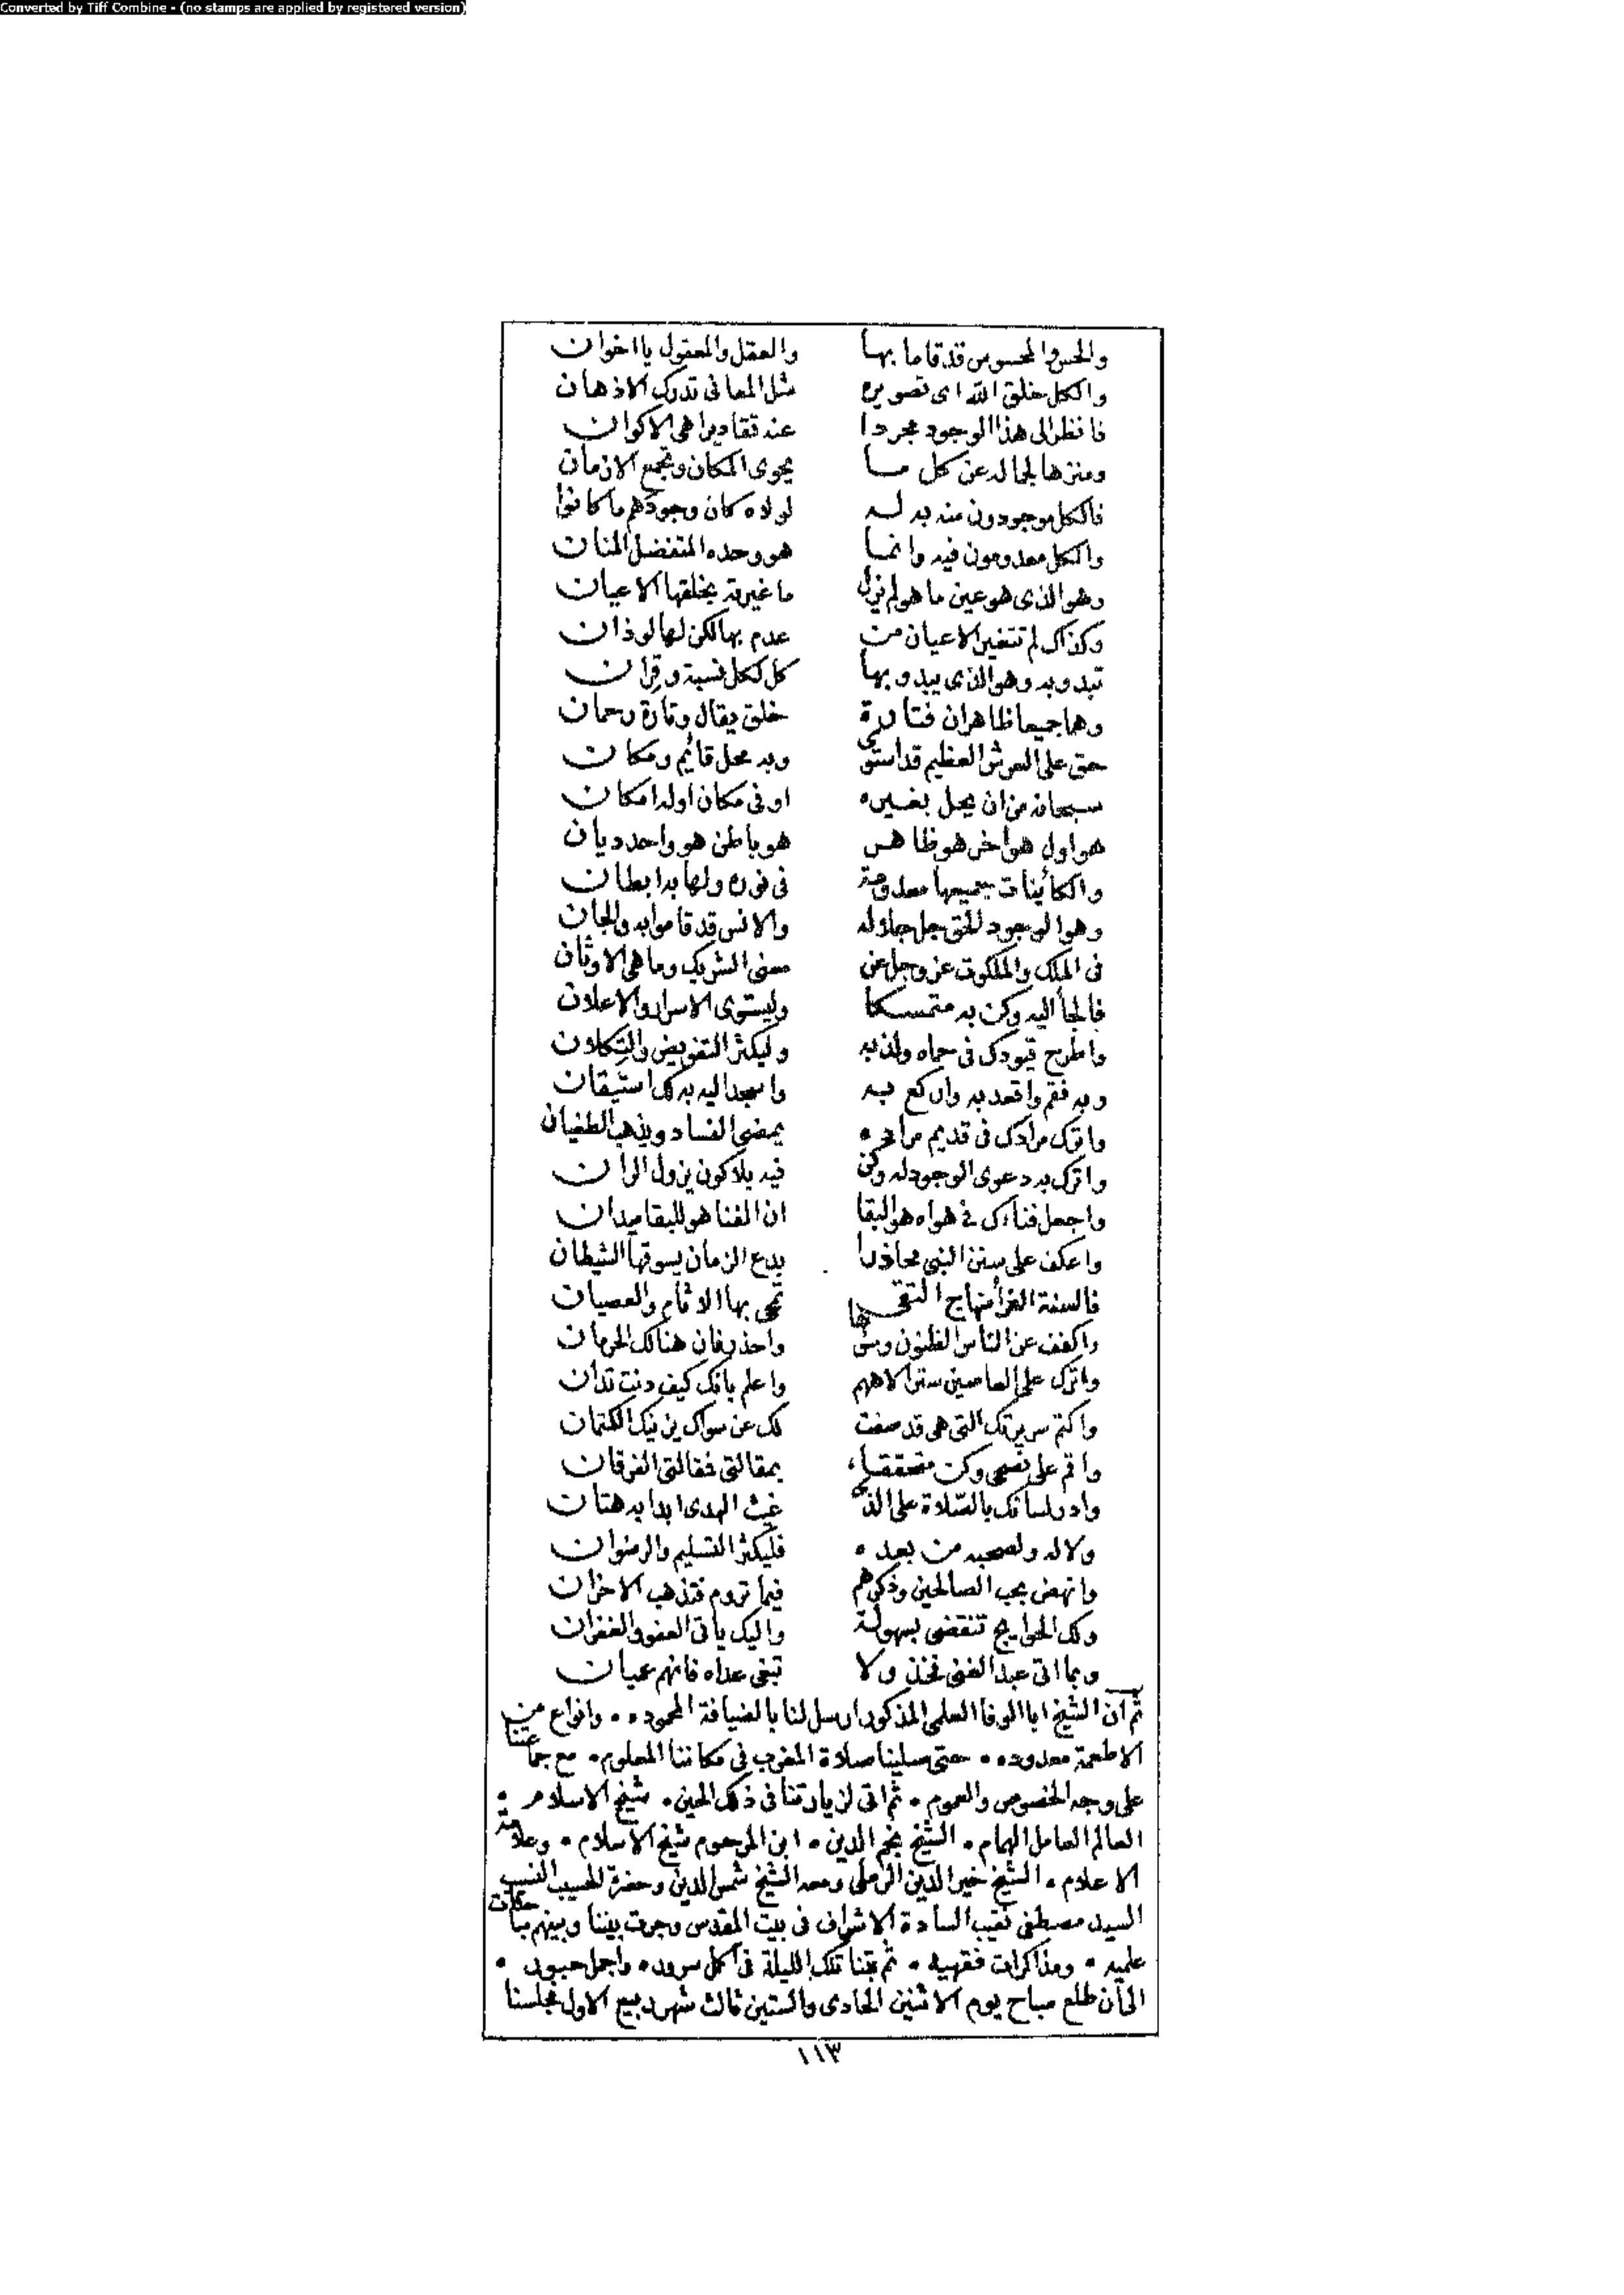 Converted by Tiff Combine - (no stamps are applied by registered version)
والحس والمحسوس قد قاما بها والعقل والمعقول يا اخوان
والكل خلق الله اى تصويره مثل المعانى تدرك الاذهان
فانظر الى هذا الوجود مجردا عند تقاديرا هى الاكوان
ومنزها لجماله عن كل ما يحوى المكان وتجمع الازمان
فالكل موجودون منه به له لولاه كان وجودهم ما كانوا
والكل معدومون فيه وانما هو وحده المتفضل المنان
وهو الذى هو عين ما هو لم نزل ما غيرته بخلقها الاعيان
وكذاك لم تتغير الاعيان من عدم بها لكن لها لوذان
تبدو به وهو الذى يبدو بها كل لكل نسبة وقران
وهما جميعا ظاهران فتارة خلق يقال وتارة رحمان
حق على العرش العظيم قد استوى وبه محل قائم ومكان
سبحانه من ان يحل بغيره او فى مكان اوله امكان
هو اول هو آخر هو ظاهر هو باطن هو واحد ديان
والكائنات جميعها معدومة فى نوره ولها بدا بطان
وهو الوجود الحق جل جلاله والانس قد قاموا به والجان
فى الملك والملكوت عز وجل عن معنى الشريك وما هى الاوثان
فالجأ اليه وكن به متمسكا وليستوى الاسرار والاعلان
واطرح قيودك فى حماه ولذ به وليكثر التفويض والتكلان
وبه فقم واقعد به واركع به واسجد اليه به كل استيقان
واترك مرادك فى قديم مراده يمضى الفساد ويذهب الطغيان
واترك به دعوى الوجود له وكن فيه بلا كون يزول الران
واجعل فناءك فى هواه هو البقا ان الفنا هو للبقا ميدان
واعكف على سنن النبى محاذرا بدع الزمان يسوقها الشيطان
فالسنة الغرا منهاج التقى تمحى بها الاثام والعصيان
واكفف عن الناس الظنون وشرها واحذر فان هنالك الحرمان
واترك على العاصين ستر الاههم واعلم بانك كيف دنت تدان
واكتم سريرتك التى هى قد صفت لك عن سواك يزينك الكتمان
واقم على نصحى وكن متحققا بمقالتى فمقالتى الفرقان
وادر لسانك بالصلاة على الذى غيث الهدى ابدا به هتان
ولاله ولصحبه من بعده فليكثر التسليم والرضوان
وانهض بحب الصالحين وذكرهم فيما تروم فتذهب الاحزان
ولك الحوايج تنقضى بسهولة واليك ياتى العفو والغفران
وبما اتى عبد الغنى فخذ ولا تبغى عداه فانهم عميان
ثم ان الشيخ ابا الوفا العلمى المذكور ارسل لنا بالضيافة المحموده • وانواع من
الاطعمة معدوده • حتى صلينا صلاة المغرب فى مكاننا المعلوم • مع جماعتنا
على وجه الخصوص والعموم • ثم اتى لزيارتنا فى ذلك الحين • شيخ الاسلام •
العالم العامل الهمام • الشيخ نجم الدين • ابن المرحوم شيخ الاسلام • وعلامة
الاعلام • الشيخ خير الدين الرملى ومعه الشيخ شمس الدين وحضرة الحسيب النسيب
السيد مصطفى نقيب السادة الاشراف فى بيت المقدس وجرت بيننا وبينهم مباحثات
علميه • ومذاكرات فقهيه • ثم بتنا تلك الليلة فى اكمل سرور • واجمل حبور •
الى ان طلع صباح يوم الاثنين الحادى والستين ثالث شهر ربيع الاول فجلسنا
١١٣